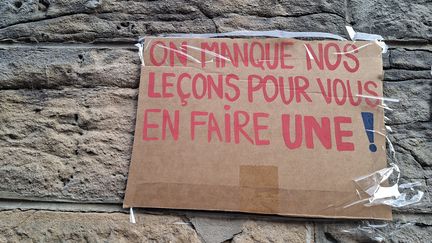 ON MANQUE NOS
LEÇONS POUR VOUS
EN FAIRE UNE !